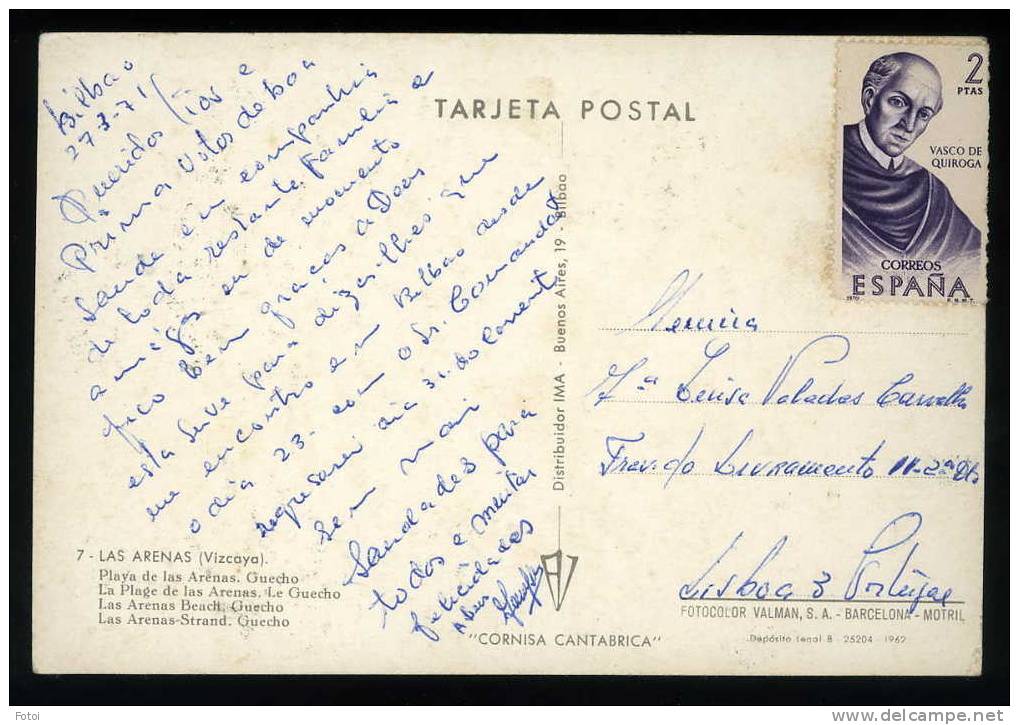 TARJETA POSTAL
2
PTAS
VASCO DE
QUIROGA
CORREOS
ESPAÑA
1970
F.N.M.T.
Bilbao
27-3-71
Queridos Tios e
Prima Votos de boa
Saude em companhia
de toda restante Familia e
amigos eu de momento
fico bem graças a Deus
esta serve para dizer-lhes que
me encontro em Bilbao desde
o dia 23- com o Sr. Comandante
regressarei dia 31 do Corrente
Sem mais
Saudades para
todos e muitas
felicidades
Adeus
Distribuidor IMA - Buenos Aires, 19 - Bilbao
Menina
Luisa Valadas Carvalho
Trav. do Livramento 11-2º
Lisboa 3 Portugal
7 - LAS ARENAS (Vizcaya).
Playa de las Arenas. Guecho
La Plage de las Arenas. Le Guecho
Las Arenas Beach. Guecho
Las Arenas-Strand. Guecho
"CORNISA CANTABRICA"
FOTOCOLOR VALMAN, S. A. - BARCELONA - MOTRIL
Depósito Legal B - 25204 - 1962
Fotoi
www.delcampe.net